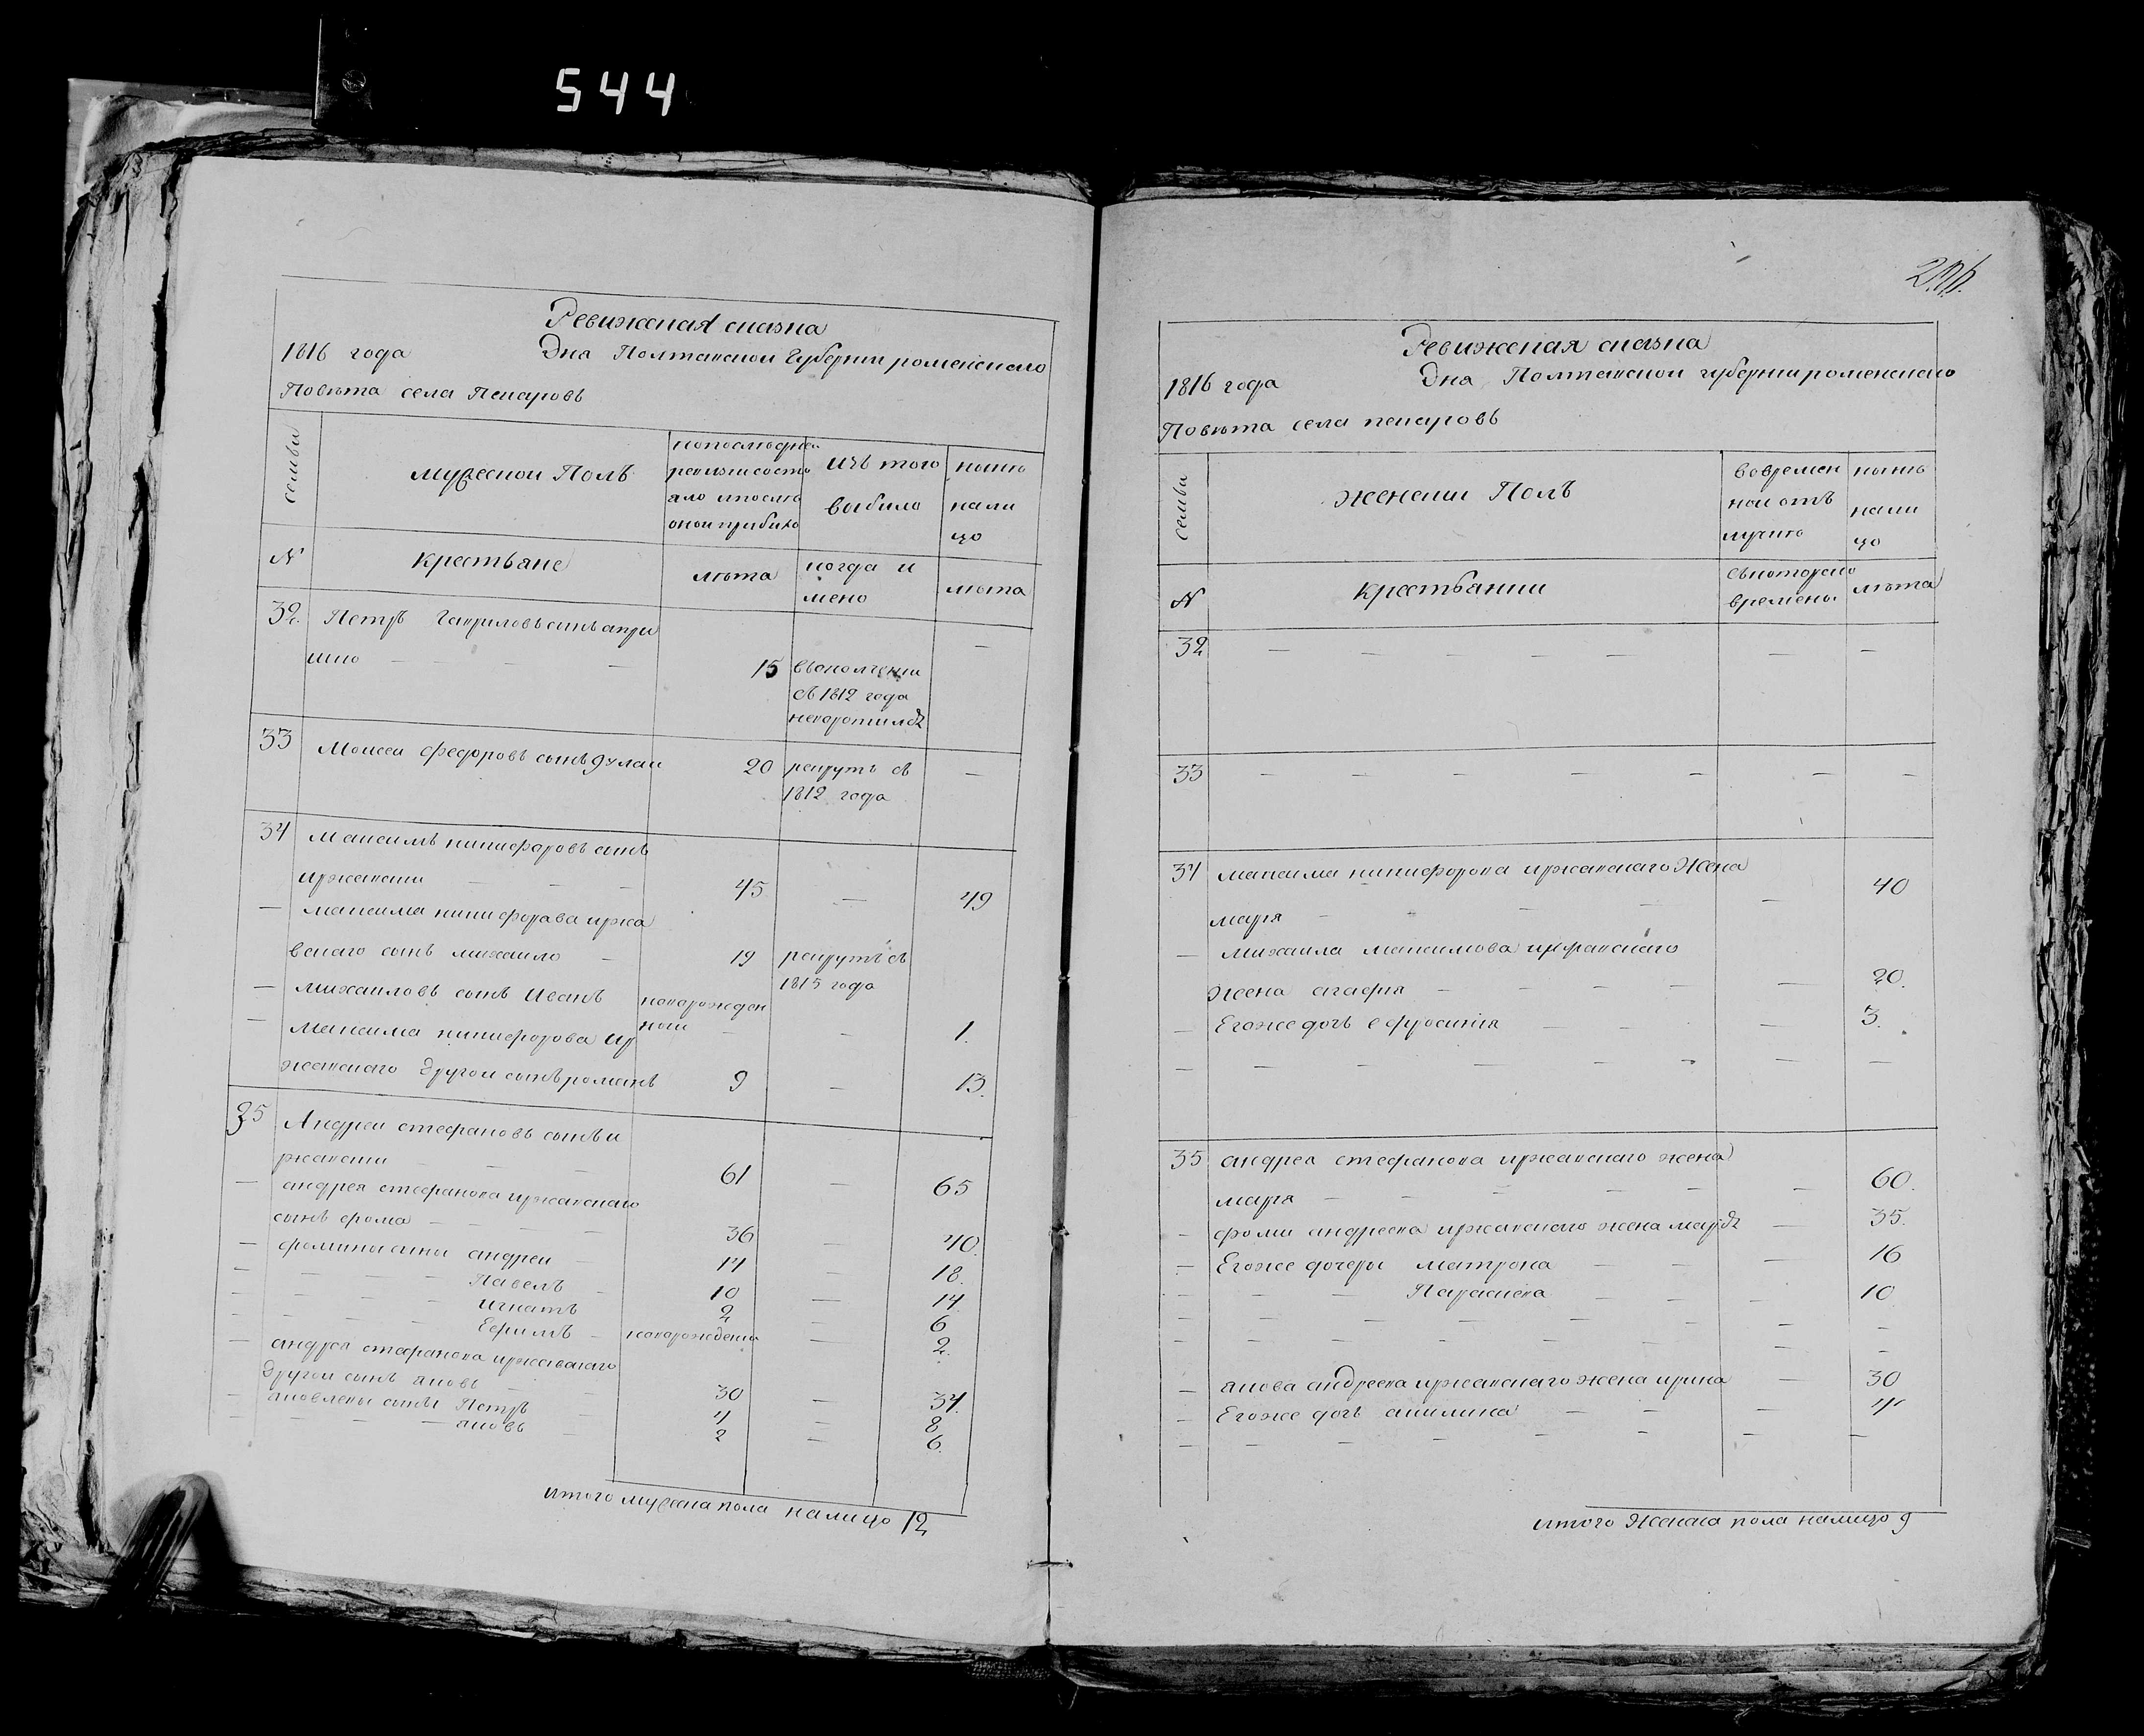 544
Ревижская сказка
1816 года Дня Полтавской Губернии роменского
Повѣта села Пекаровъ
семьи
мужеской Полъ
попоследней
ревизии состо
яло ипосле
оной прибило
изъ того
выбило
нынѣ
нали
цо
N
крестьяне
лѣта
когда и
мено
лѣта
32. Петръ Гавриловъ синъ
15 вьополчении
съ 1812 года
неворотилса
33 Моисеи федоровъ синъ дулаи 20 рекрутъ съ
1812 года
34 максимъ никифоровъ синъ
иржавски 45 49
максима никифорава иржа
вскаго синъ михаило 19 рекрутъ съ
1815 года
михаиловъ синъ Иванъ новорожден
ной 1.
максима никифорова ир
жавскаго другои синъ романъ 9 13.
35 Андреи стефановъ синъ и
ржавски 61 65
андрея стефанова иржавскаго
синъ фома 36 40.
фомини сини андреи 14 18.
Павелъ 10 14
игнатъ 2 6
Ефимъ новорождени 2.
андрея стефанова иржавскаго
другои синъ яковъ 30 34.
яковлеви сини Петръ 4 8
яковъ 2 6.
итого мужеска пола налицо 12
Ревижская сказка
1816 года Дня Полтавской губернии роменского
Повѣта села пекаровъ
семьи
женски Полъ
вовремен
ной отъ
лучкѣ
нынѣ
нали
цо
N
крестьянки
съкоторого
времены
лѣта
32
33
34 максима никифорова иржавскаго Жена
маря 40
михаила максимова иржавскаго
жена агафия 20.
Егоже дочь ефросиния 3.
35 андрея стефанова иржавскаго жена
маря 60.
фоми андреева иржавскаго жена 35.
Егоже дочери матрона 16
Параскева 10
якова андреева иржавскаго жена ирина 30
Егоже дочь акилина 4
итого Женска пола налицо 9